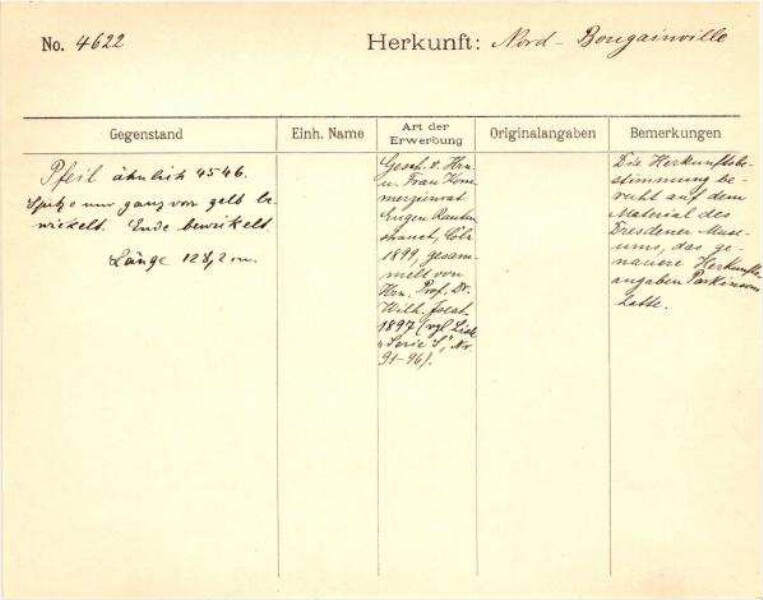 No. 4622 Herkunft: Nord-Bougainville
Gegenstand
Einh. Name
Art der
Erwerbung
Originalangaben
Bemerkungen
Pfeil ähnlich 4546.
Spitze nur ganz vorn gelb be-
wickelt. Ende bewickelt.
Länge 128,2 cm.
Gesch. v. Hrn.
u. Frau Kom-
merzienrat
Eugen Rauten-
strauch, Cöln
1899, gesam-
melt von
Hrn. Prof. Dr.
Wilh. Joest
1897 (vgl. Liste
„Serie S", Nr.
91-96).
Die Herkunftsbe-
stimmung be-
ruht auf dem
Material des
Dresdener Muse-
ums, das ge-
nauere Herkunfts-
angaben Parkinsons
hatte.